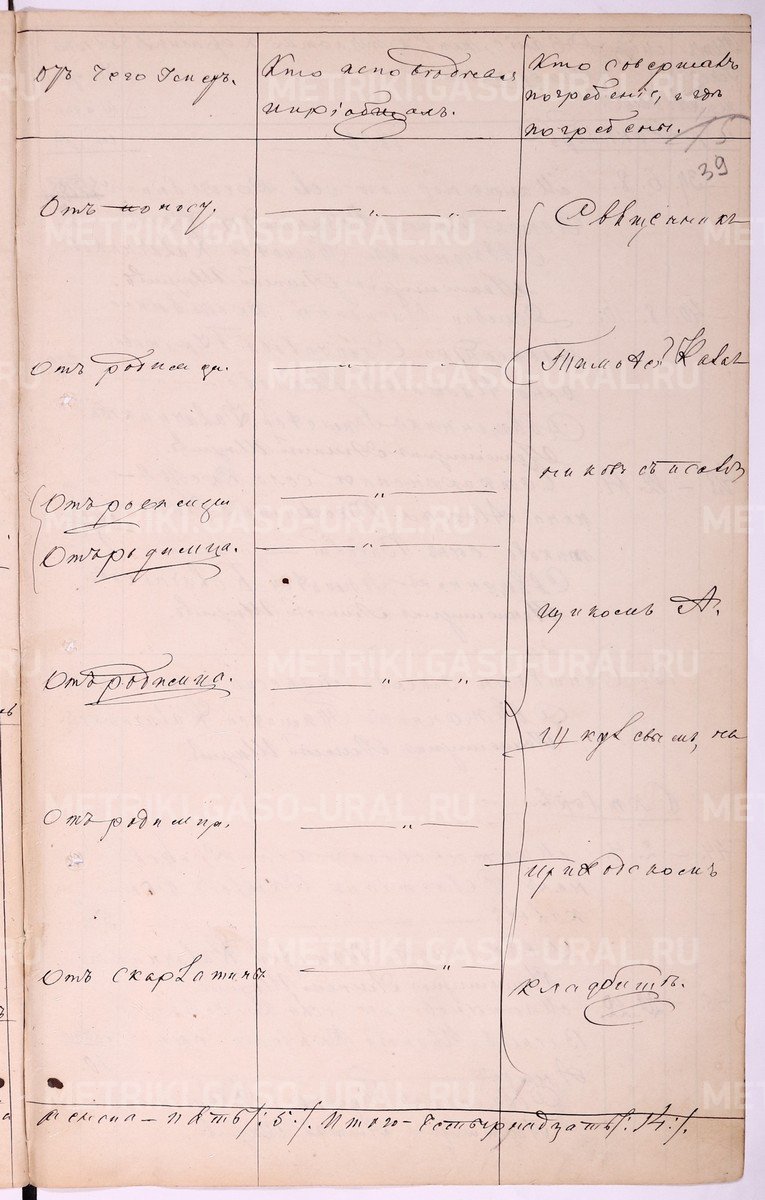 Отъ чего умеръ.
Кто исповѣдывалъ
и пріобщалъ.
Кто совершалъ
погребеніе, и гдѣ
погребены.
15
39
Отъ поносу.
Отъ родимца.
Отъ родимца
Отъ родимца.
Отъ родимца.
Отъ родимца.
Отъ скарлатины
Священникъ
Тимоѳей
щикомъ А.
на
приходскомъ
кладбищѣ.
пять /: 5 :/. Итого — четырнадцать /: 14 :/.
METRIKI.GASO-URAL.RU